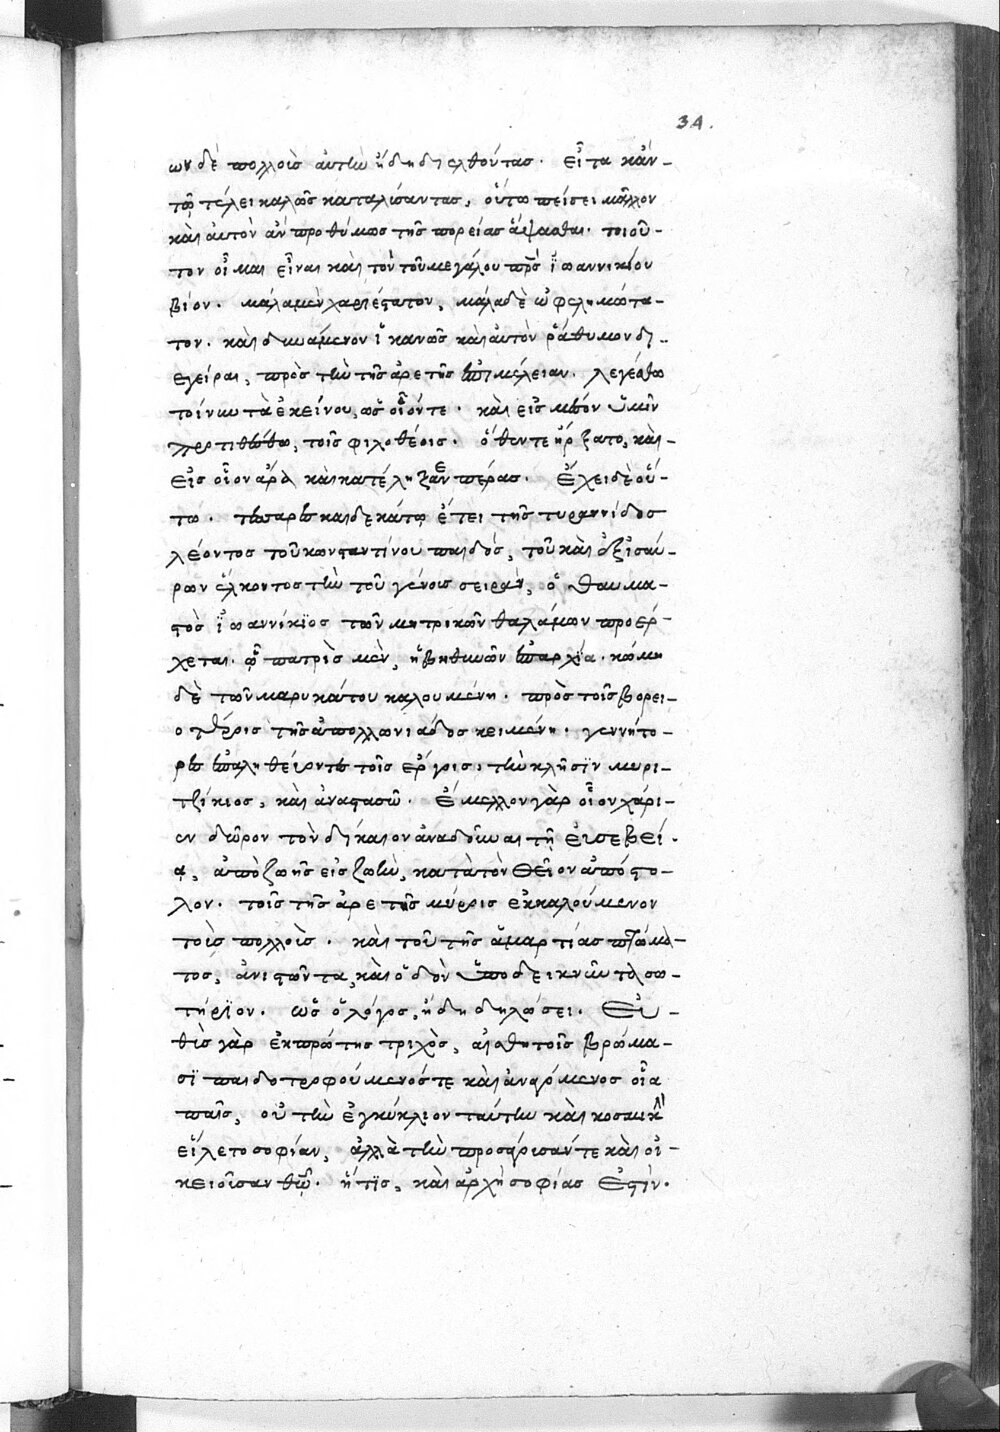 34.
ων δὲ πολλοὺς αὐτὴν ἤδη διελθόντας. εἶτα κἀν
τῷ τέλει καλῶς καταλύσαντας, οὕτω πείσει μᾶλλον
καὶ αὐτὸν ἂν προθύμως τῆς πορείας ἅψασθαι. τοιοῦ-
τον οἶμαι εἶναι καὶ τὸν τοῦ μεγάλου πρς ἰωαννικίου
βίον. μάλα μὲν χαριέστατον, μάλα δὲ ὠφελιμώτα-
τον. καὶ δυνάμενον ἱκανῶς καὶ αὐτὸν ῥάθυμον δι-
εγεῖραι, πρὸς τὴν τῆς ἀρετῆς ἐπιμέλειαν. λεγέσθω
τοίνυν τὰ ἐκείνου, ὡς οἷόν τε. καὶ εἰς μέσον ὑμῖν
προτιθέσθω, τοῖς φιλοθέοις. ὅθεν τε ἤρξατο, καὶ
εἰς οἷον ἄρα καὶ κατέληξεν πέρας. ἔχει δὲ οὕ-
τω. τεσσαρεσκαιδεκάτῳ ἔτει τῆς τυραννίδος
λέοντος τοῦ κωνσταντίνου παιδός, τοῦ καὶ ἐξ ἰσαύ-
ρων ἕλκοντος τὴν τοῦ γένους σειράν, ὁ θαυμα-
στὸς ἰωαννίκϊος τῶν μητρικῶν θαλάμων προέρ-
χεται. ᾧ πατρὶς μὲν, ἡ βηθυνῶν ἐπαρχία. κώμη
δὲ τῶν μαρυκάτου καλουμένη. πρὸς τοῖς βορει-
οτέροις τῆς ἀπολλωνιάδος κειμένη. γεννήτο-
ρες ἐπαληθεύοντες τοῖς ἔργοις, τὴν κλῆσϊν μυρι-
τζίκιος, καὶ ἀναστασῶ. ἔμελλον γὰρ οἷον χάρι-
εν δῶρον τὸν δίκαιον ἀναδοῦναι τῇ εὐσεβεί-
ᾳ, ἀπὸ ζωῆς εἰς ζωὴν, κατὰ τὸν θεῖον ἀπόστο-
λον. τοῖς τῆς ἀρετῆς μύροις ἐκκαλούμενον
τοὺς πολλοὺς. καὶ τοῦ τῆς ἁμαρτίας πτώμα-
τος, ἀνιστῶντα, καὶ ὁδὸν ὑποδεικνῦντα σω-
τήρϊον. ὡς ὁ λόγος, ἤδη δηλώσει. εὐ-
θὺς γὰρ ἐκ πρώτης τριχὸς, αἰσθητοῖς βρώμα-
σϊ παιδοτροφούμενός τε καὶ ἀναγόμενος οἷα
παῖς, οὐ τὴν ἐγκύκλιον ταύτην καὶ κοσμικὴν
εἵλετο σοφίαν, ἀλλὰ τὴν προσάγουσάν τε καὶ οἰ-
κειοῦσαν θῶ. ἥτϊς, καὶ ἀρχὴ σοφίας ἐστὶν.